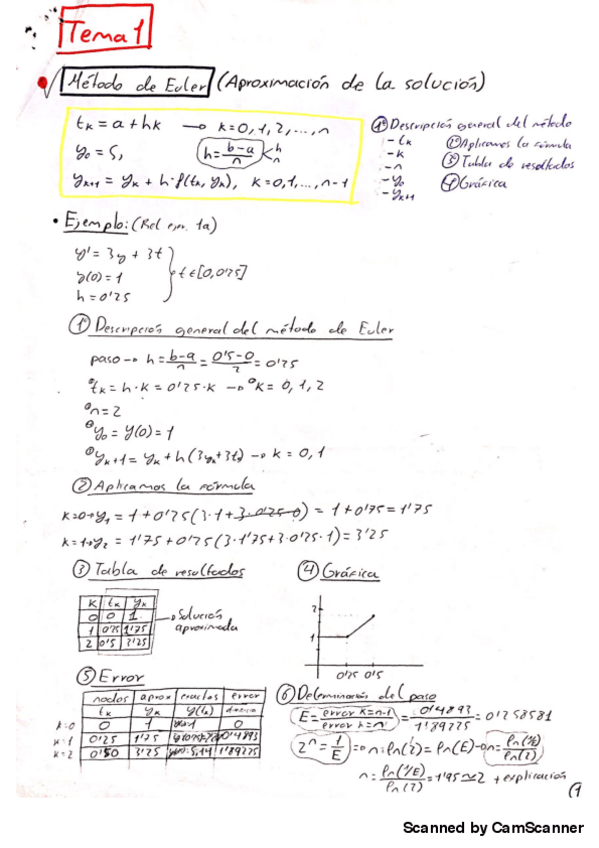 Tema 1
Método de Euler (Aproximación de la solución)
tk = a + hk → k = 0, 1, 2, ..., n
y0 = S, h = b-a/n <h n
yk+1 = yk + h·f(tk, yk), k = 0, 1, ..., n-1
1º Descripción general del método
- tk
- k
- n
- y0
- yk+1
2º Aplicamos la fórmula
3º Tabla de resultados
4º Gráfica
• Ejemplo: (Rel ejer. 1a)
y' = 3y + 3t
y(0) = 1
h = 0'25
t ∈ [0, 0'25]
1º Descripción general del método de Euler
paso → h = b-a/n = 0'5-0/2 = 0'25
tk = h·k = 0'25·k → k = 0, 1, 2
n = 2
y0 = y(0) = 1
yk+1 = yk + h(3yk + 3t) → k = 0, 1
2 Aplicamos la fórmula
k=0→ y1 = 1 + 0'25(3·1 + 3·0'25·0) = 1 + 0'75 = 1'75
k=1→ y2 = 1'75 + 0'25(3·1'75 + 3·0'25·1) = 3'25
3 Tabla de resultados
K tk yk
0 0 1
1 0'25 1'75
2 0'5 3'25
→ Solución aproximada
4 Gráfica
2
1
0'25 0'5
5 Error
nodos aprox exactos error
tk yk y(tk)
k=0 0 1 0
k=1 0'25 1'75 0'4893
k=2 0'50 3'25 5,14 1'89225
6 Determinación del paso
E = error k=n-1 / error k=n = 0'4893/1'89225 = 0'258581
2ⁿ = 1/E → n·ln(2) = ln(E) → n = ln(1/E)/ln(2)
n = ln(1/E)/ln(2) = 1'95 ≃ 2 + explicación
(1
Scanned by CamScanner